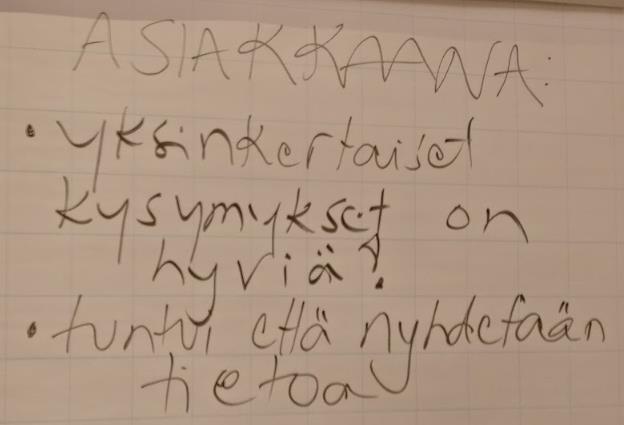 ASIAKKAANA:
• yksinkertaiset
kysymykset on
hyviä?
• tuntui että nyhdetään
tietoa